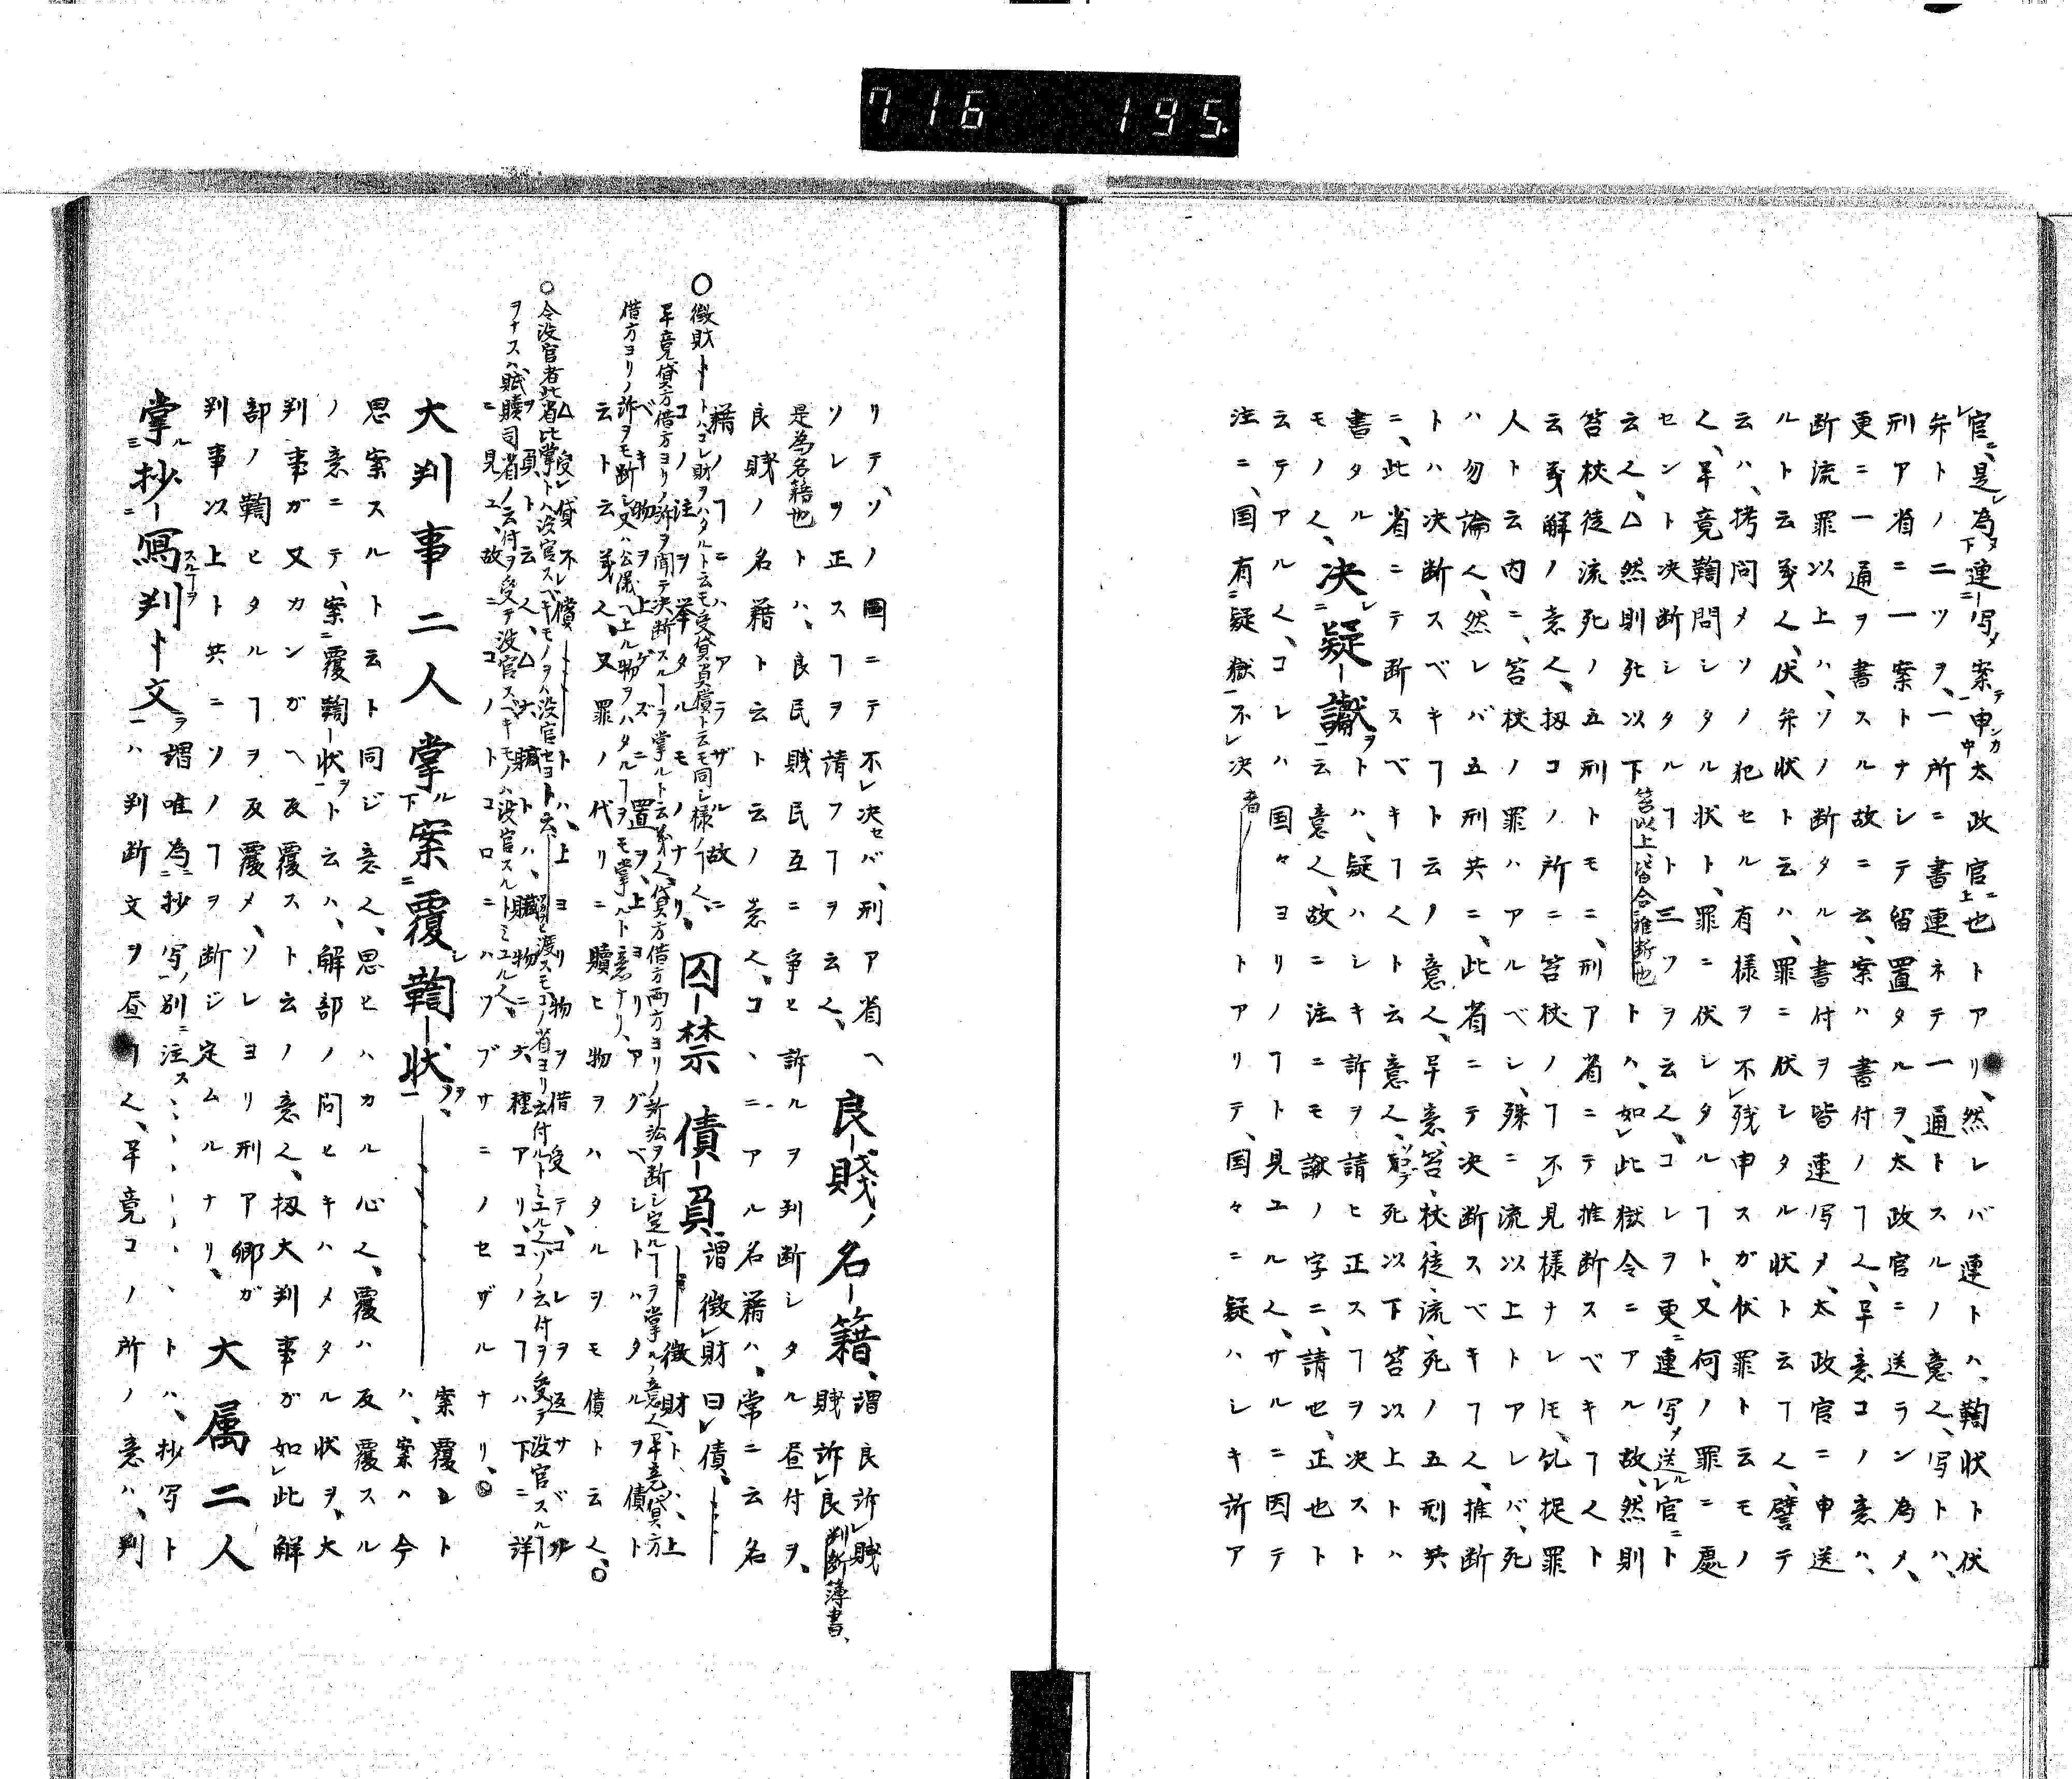 716 195.
官ニ、是レ為ヌ連ニ写メ案テ申ンカ太政官ニ也トアリ、然レバ連トハ、鞫状ト伏
弁トノ二ツヲ、一所ニ書連ネテ一通トスルノ意也、写トハ、
刑ア省ニ一案トナシテ留置タルヲ、太政官ニ送ラン為メ、
更ニ一通ヲ書スル故ニ云、案ハ書付ノヿ也、畢意コノ意ハ、
断流罪以上ハ、ソノ断タル書付ヲ皆連写メ、太政官ニ申送
ルト云義也、伏弁状ト云ハ、罪ニ伏シタル状ト云ヿ也、譬テ
云ハ、拷問メソノ犯セル有様ヲ不残申スガ伏罪ト云モノ
也、畢竟鞫問シタル状ト、罪ニ伏シタルヿト、又何ノ罪ニ處
セント决断シタルヿト三ツヲ云也、コレヲ更ニ連写メ送ル官ニト
云也、△然則死以下笞以上皆合推断也トハ、如此獄令ニアル故、然則
笞杖徒流死ノ五刑トモニ、刑ア省ニテ推断スベキヿ也ト
云義解ノ意也、扨コノ所ニ笞杖ノヿ不見様ナレ𪜈、糺捉罪
人ト云内ニ、笞杖ノ罪ハアルベシ、殊ニ流以上トアレバ、死
ハ勿論也、然レバ五刑共ニ、此省ニテ决断スベキヿ也、推断
トハ决断スベキヿト云ノ意也、畢意、笞、杖、徒、流、死ノ五刑共
ニ、此省ニテ断スベキヿ也ト云意也、死以下笞以上トハ
書タル也、决疑讞ヲトハ、疑ハシキ訴ヲ請ヒ正スヿヲ决ストト
モノ也、云意也、故ニ注ニモ讞ノ字ニ、請也、正也ト
云テアル也、コレハ国々ヨリノヿト見ユル也、サルニ因テ
注ニ、国有疑獄不决者ノトアリテ、国々ニ疑ハシキ訴ア
リテ、ソノ國ニテ不决セバ、刑ア省ヘ
ソレヲ正スヿヲ請フヿヲ云也、良賤ノ名籍、謂良訴賤、賤訴良、判断簿書、
是為名籍也トハ、良民賎民互ニ争ヒ訴ルヲ判断シタル昼付ヲ、
良賤ノ名籍ト云トノ意也、コヽニアル名籍ハ、常ニ云名
籍ノヿニハアラザル故ニ、囚禁債負、謂徴財曰債、
コノ注ヲ挙タルモノナリ、徴財トハ、上
ベキ物ヲ上ゲズニ置ヲ、上ヨリアグベシトハタルヲ債ト
云ト云義也、又罪ノ代リニ贖ヒ物ヲハタルヲモ債ト云也、○
△受貸不償トハ、上ヨリ物ヲ借受テ、コレヲ返サベル
ヲ負ト云也、△大贓トハ、贓物ニ六種アリ、コノヿハ下ニ詳
ニ見ユ、故ニコノトコロニハツブサニノセザルナリ、
○徴財トハコレ財ヲハタルト云モ受貸負償ト云モ同シ様ノヿ也、
畢竟貸方借方ヨリノ訴ヲ聞テ决断スルヿヲ掌ルト云義也、貸方借方両方ヨリノ訴訟ヲ断シ定ルヿヲ掌ルノ意也、畢竟貸方
借方ヨリノ訴ヲモ断シ又ハ公儀ヘ上ル物ヲハタルヿヲモ掌ルト意ナリ、
○令没官者此省比掌トハ没官スベキモノヲハ没官セヨト云
ヲナスハ贓贖司省ノ云付ヲ受テ没官スベキモノハ没官スルトミユル也、
大判事二人掌ル案ニ覆シ鞫状ヲ、案覆シト
ハ、案ハ今
思案スルト云ト同ジ意也、思ヒハカル心也、覆ハ反覆スル
ノ意ニテ、案ニ覆鞫状ヲト云ハ、解部ノ問ヒキハメタル状ヲ、大
判事ガ又カンガヘ反覆スト云ノ意也、扨大判事ガ如此解
部ノ鞫ヒタルヿヲ反覆メ、ソレヨリ刑ア卿ガ
判事以上ト共ニソノヿヲ断ジ定ムルナリ、大属二人
掌ル抄写スルヿヲ判文ヲ謂唯為ニ抄写ノ別ニ注ストハ、抄写ト
ハ判断文ヲ昼ヿ也、畢竟コノ所ノ意ハ、判